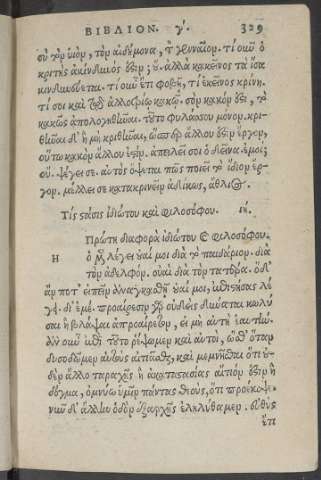 ΒΙΒΛΙΟΝ. γ΄. 329
σὺ τὸν υἱὸν, τὸν αἰδήμονα, τὸν γενναῖον. τί οὖν ὁ
κριτὴς ἀκίνδυνός ἐστιν; οὔ. ἀλλὰ κἀκεῖνος τὰ ἴσα
κινδυνεύεται. τί οὖν ἔτι φοβῇ, τί ἐκεῖνος κρίνῃ.
τί σοι καὶ τῷ ἀλλοτρίῳ κακῷ. σὸν κακόν ἐστι, τὸ
κακῶς ἀπολογηθῆναι. τοῦτο φυλάσσου μόνον. κρι-
θῆναι δ' ἢ μὴ κριθῆναι, ὥσπερ ἄλλου ἐστὶν ἔργον,
οὕτω κακὸν ἄλλου ἐστίν. ἀπειλεῖ σοι ὁ δεῖνα. ἐμοί;
οὔ. ψέγει σε. αὐτὸς ὄψεται πῶς ποιεῖ τὸ ἴδιον ἔρ-
γον. μέλλει σε κατακρινεῖν ἀδίκως, ἄθλιος.
Τίς στάσις ἰδιώτου καὶ φιλοσόφου. ιη.
Πρώτη διαφορὰ ἰδιώτου καὶ φιλοσόφου.
Η ὁ μὲν λέγει οὐαί μοι διὰ τὸ παιδάριον. διὰ
τὸν ἀδελφὸν. οὐαὶ διὰ τὸν πατέρα. ὁ δ'
ἄν ποτ' εἰπεῖν ἀναγκασθῇ οὐαί μοι, ἐπιστήσας λέ
γει. δι' ἐμέ. προαίρεσιν γὰρ οὐδεὶς δύναται κωλύ
σαι ἢ βλάψαι ἀπροαίρετον, εἰ μὴ αὐτὴ ἑαυτήν.
ἂν οὖν ἐπὶ τοῦτο ῥέψωμεν καὶ αὐτοὶ, ὥσθ' ὅταν
δυσοδῶμεν αὑτοὺς αἰτιᾶσθαι, καὶ μεμνῆσθαι ὅτι οὐ-
δὲν ἄλλο ταραχῆς ἢ ἀκαταστασίας αἴτιόν ἐστιν ἢ
δόγμα, ὀμνύω ὑμῖν πάντας θεούς, ὅτι προεκόψαμεν.
νῦν δ' ἄλλην ὁδὸν ἐξαρχῆς ἐληλύθαμεν. εὐθὺς
ἔτι